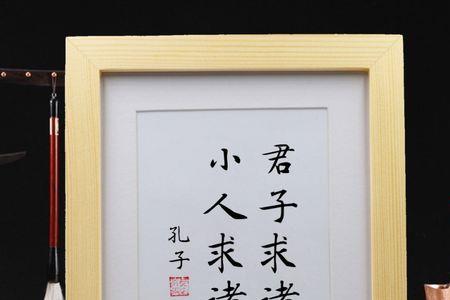 君子求诸
小人求诸
孔子